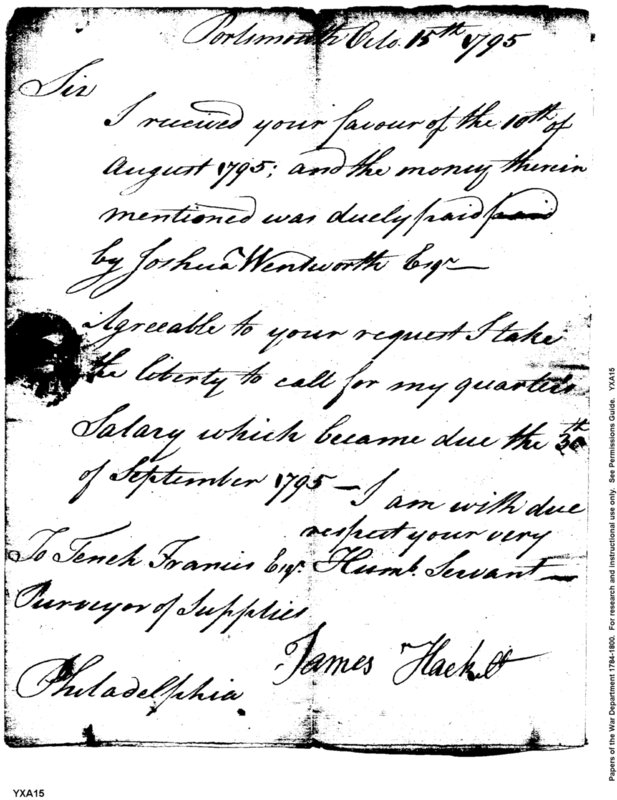 Portsmouth Octo. 15th 1795
Sir
I received your favour of the 10th of
August 1795; and the money therein
mentioned was duely paid paid
by Joshua Wentworth Esqr —
Agreeable to your request I take
the liberty to call for my quarters
Salary which became due the 30th
of September 1795 — I am with due
respect your very
Humbl. Servant —
To Tench Francis Esqr.
Purveyor of Supplies
Philadelphia
James Hackett
YXA15
Papers of the War Department 1784-1800. For research and instructional use only. See Permissions Guide. YXA15